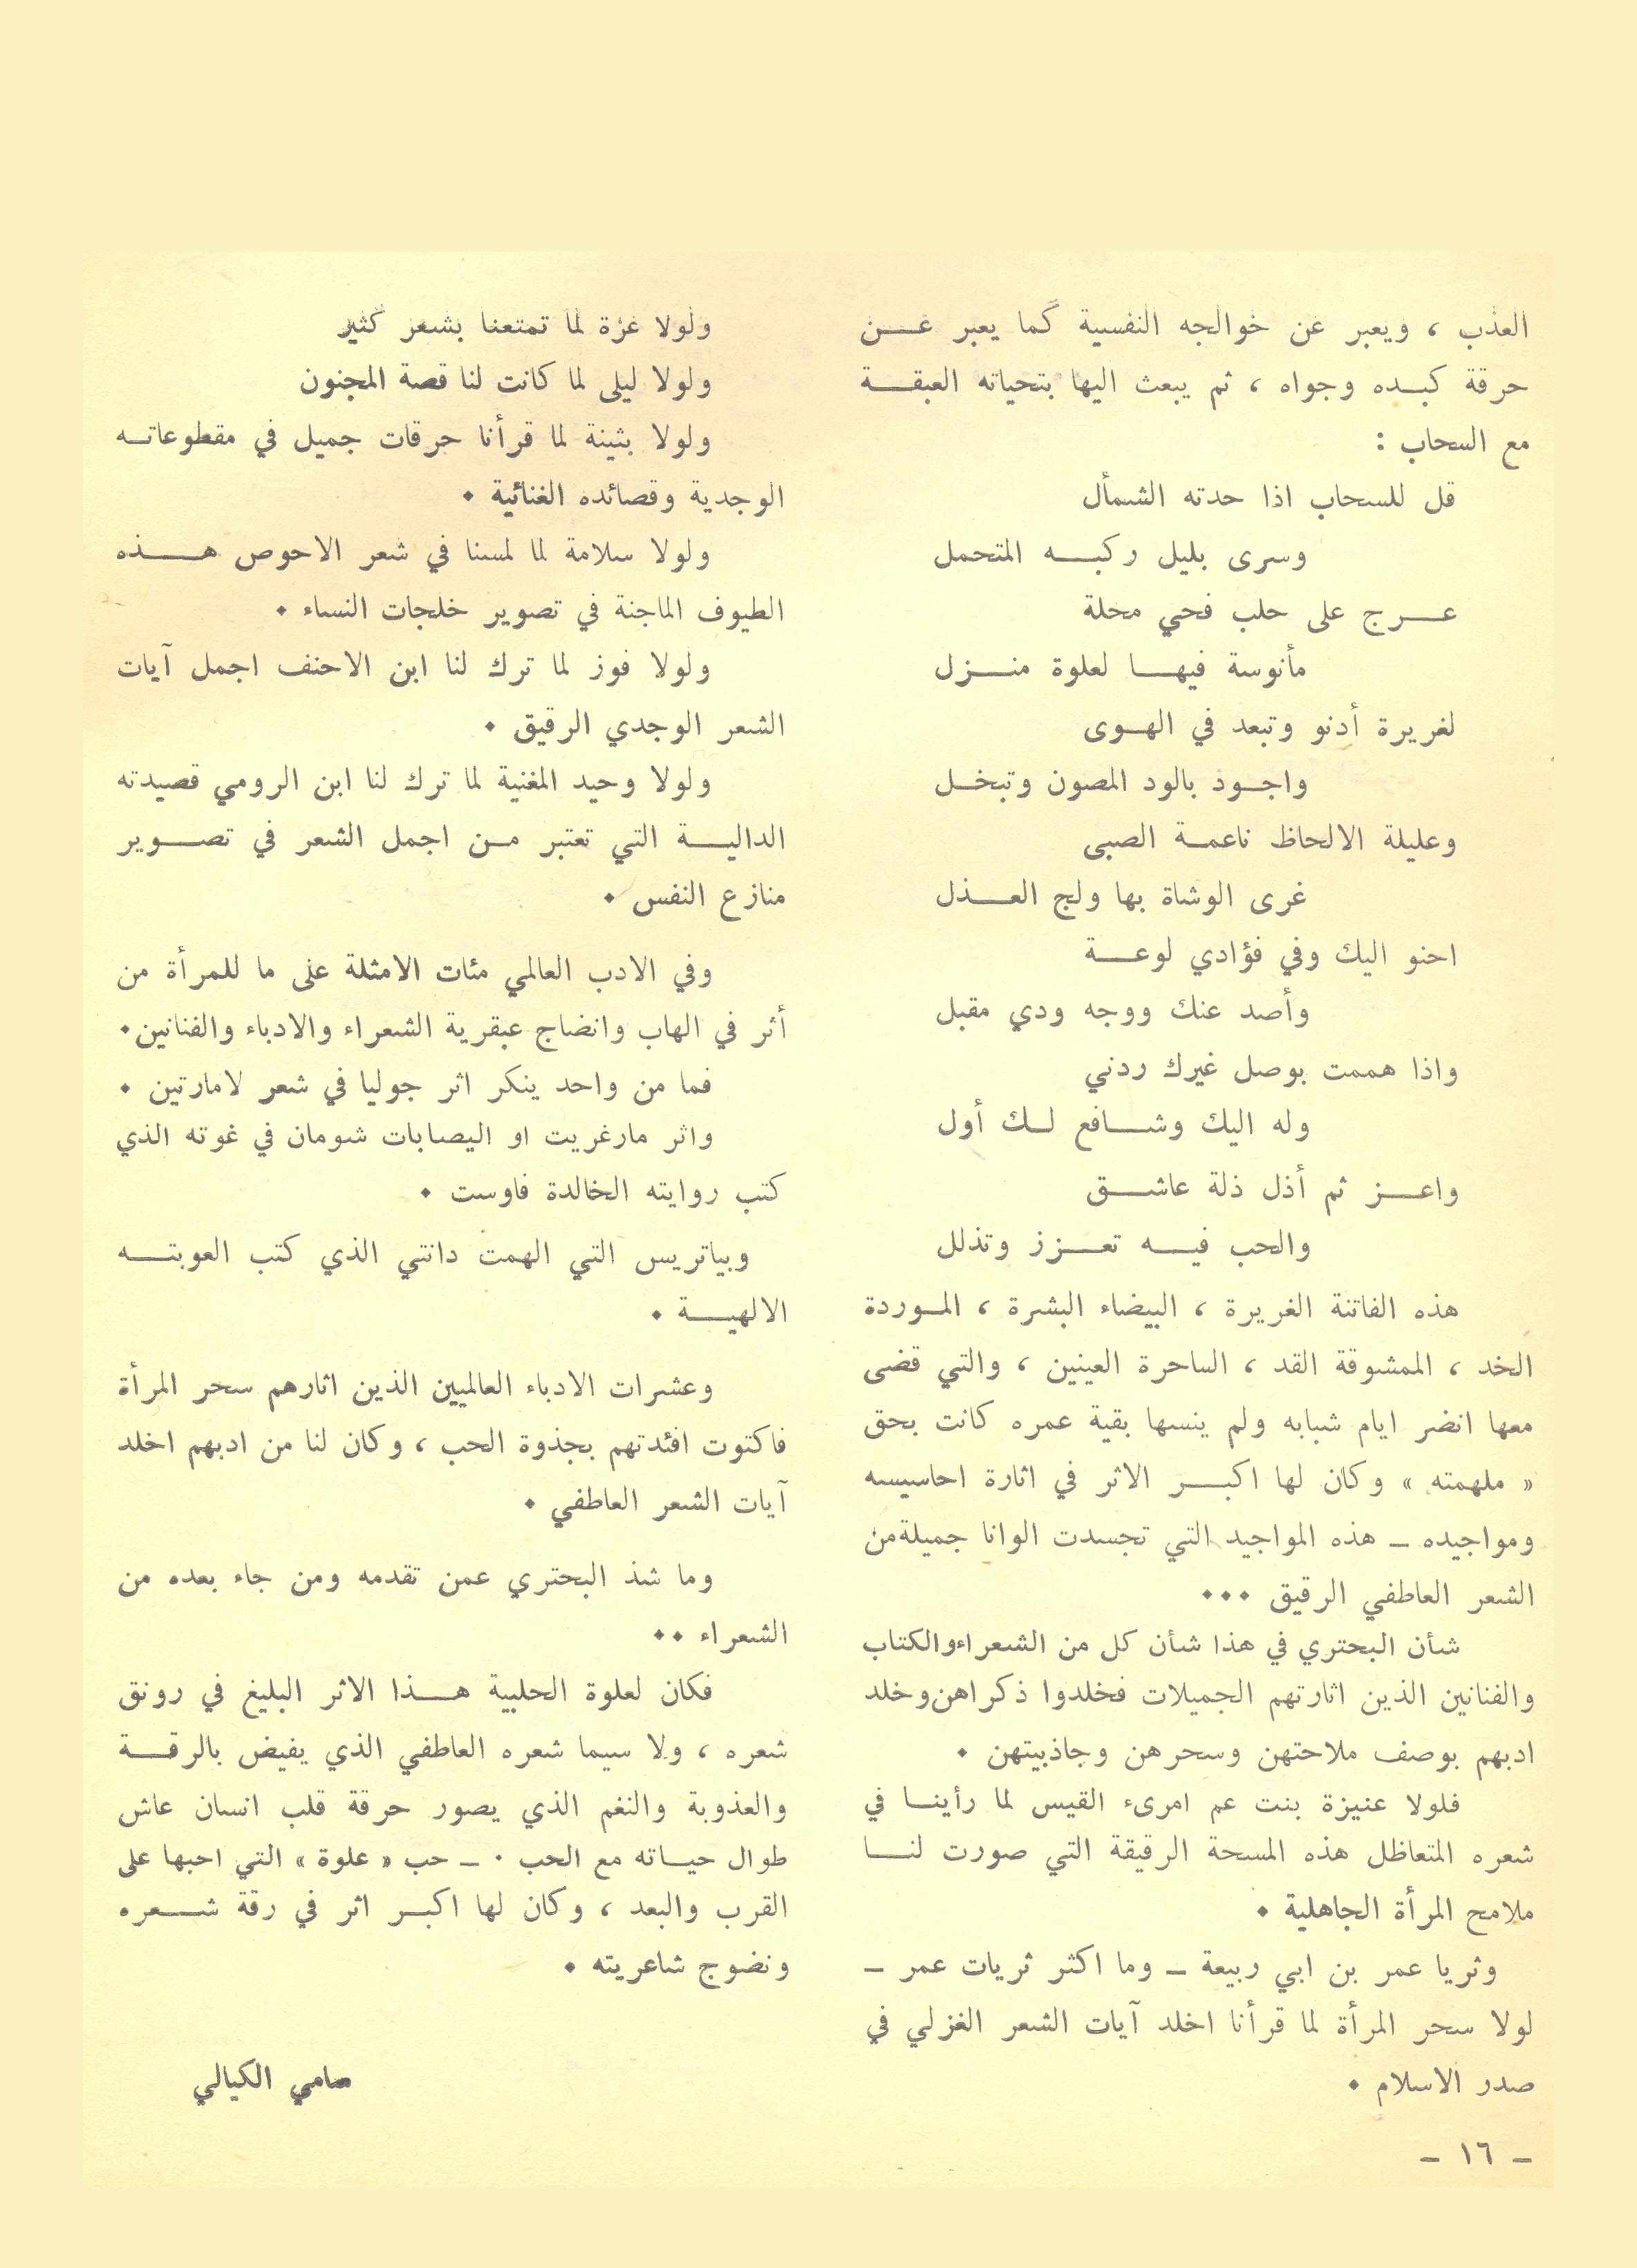 العذب ، ويعبر عن خوالجه النفسية كما يعبر عن
حرقة كبده وجواه ، ثم يبعث اليها بتحياته العبقة
مع السحاب :
قل للسحاب اذا حدته الشمأل
وسرى بليل ركبه المتحمل
عرج على حلب فحي محلة
مأنوسة فيها لعلوة منزل
لغريرة أدنو وتبعد في الهوى
واجود بالود المصون وتبخل
وعليلة الالحاظ ناعمة الصبى
غرى الوشاة بها ولج العذل
احنو اليك وفي فؤادي لوعة
وأصد عنك ووجه ودي مقبل
واذا هممت بوصل غيرك ردني
وله اليك وشافع لك أول
واعز ثم أذل ذلة عاشق
والحب فيه تعزز وتذلل
هذه الفاتنة الغريرة ، البيضاء البشرة ، الموردة
الخد ، الممشوقة القد ، الساحرة العينين ، والتي قضى
معها انضر ايام شبابه ولم ينسها بقية عمره كانت بحق
« ملهمته » وكان لها اكبر الاثر في اثارة احاسيسه
ومواجيده – هذه المواجيد التي تجسدت الوانا جميلة من
الشعر العاطفي الرقيق ...
شأن البحتري في هذا شأن كل من الشعراء والكتاب
والفنانين الذين اثارتهم الجميلات فخلدوا ذكراهن وخلد
ادبهم بوصف ملاحتهن وسحرهن وجاذبيتهن .
فلولا عنيزة بنت عم امرىء القيس لما رأينا في
شعره المتعاظل هذه المسحة الرقيقة التي صورت لنا
ملامح المرأة الجاهلية .
وثريا عمر بن ابي ربيعة – وما اكثر ثريات عمر –
لولا سحر المرأة لما قرأنا اخلد آيات الشعر الغزلي في
صدر الاسلام .
ولولا عزة لما تمتعنا بشعر كثير
ولولا ليلى لما كانت لنا قصة المجنون
ولولا بثينة لما قرأنا حرقات جميل في مقطوعاته
الوجدية وقصائده الغنائية .
ولولا سلامة لما لمسنا في شعر الاحوص هذه
الطيوف الماجنة في تصوير خلجات النساء .
ولولا فوز لما ترك لنا ابن الاحنف اجمل آيات
الشعر الوجدي الرقيق .
ولولا وحيد المغنية لما ترك لنا ابن الرومي قصيدته
الدالية التي تعتبر من اجمل الشعر في تصوير
منازع النفس .
وفي الادب العالمي مئات الامثلة على ما للمرأة من
أثر في الهاب وانضاج عبقرية الشعراء والادباء والفنانين .
فما من واحد ينكر اثر جوليا في شعر لامارتين .
واثر مارغريت او اليصابات شومان في غوته الذي
كتب روايته الخالدة فاوست .
وبياتريس التي الهمت دانتي الذي كتب العوبته
الالهية .
وعشرات الادباء العالميين الذين اثارهم سحر المرأة
فاكتوت افئدتهم بجذوة الحب ، وكان لنا من ادبهم اخلد
آيات الشعر العاطفي .
وما شذ البحتري عمن تقدمه ومن جاء بعده من
الشعراء ..
فكان لعلوة الحلبية هذا الاثر البليغ في رونق
شعره ، ولا سيما شعره العاطفي الذي يفيض بالرقة
والعذوبة والنغم الذي يصور حرقة قلب انسان عاش
طوال حياته مع الحب . – حب « علوة » التي احبها على
القرب والبعد ، وكان لها اكبر اثر في رقة شعره
ونضوج شاعريته .
سامي الكيالي
– ١٦ –